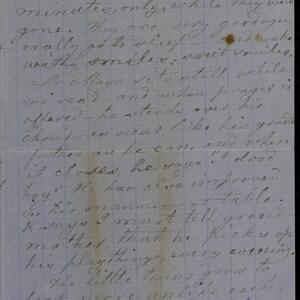 minutes, only, while they were
gone. They are very good gen-
erally go to sleep and wake
with smiles, sweet smiles.
Mr Mayo sits still while
we read and when prayer is
offered - he stands over his
chair - as near like his grand
father as he can, and when
it closes, he says "I dood
boy" He has also improved
in his manners at table.
& says I must tell grand
mother, that he picks up
his playthings every evening.
The little twins grow to
look more unlike each